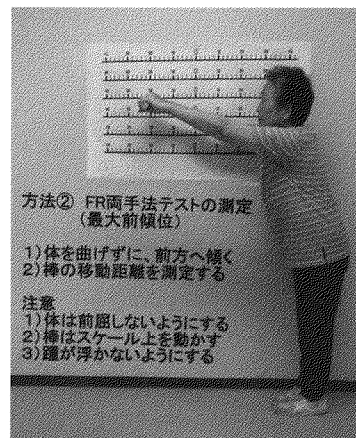 方法② FR両手法テストの測定
(最大前傾位)
1)体を曲げずに、前方へ傾く
2)棒の移動距離を測定する
注意
1)体は前屈しないようにする
2)棒はスケール上を動かす
3)踵が浮かないようにする